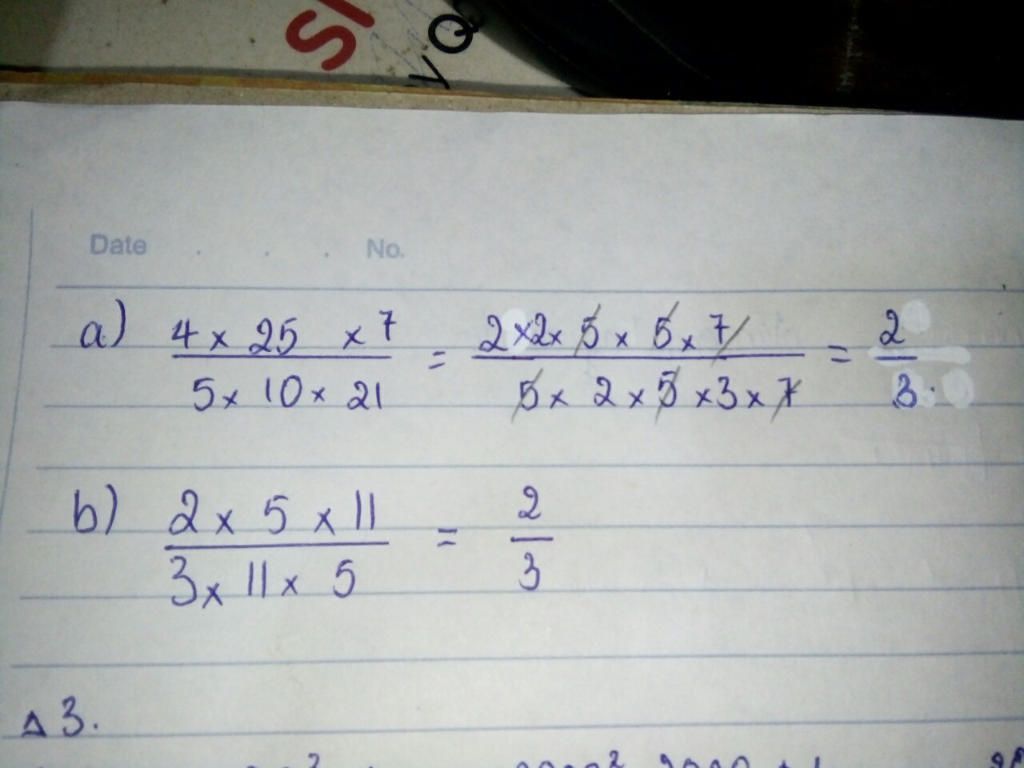 SA
VQ
Date . . . No.
a) 4 × 25 × 7 / 5 × 10 × 21 = 2 × 2 × 5 × 5 × 7 / 5 × 2 × 5 × 3 × 7 = 2 / 3.
b) 2 × 5 × 11 / 3 × 11 × 5 = 2 / 3
Δ 3.